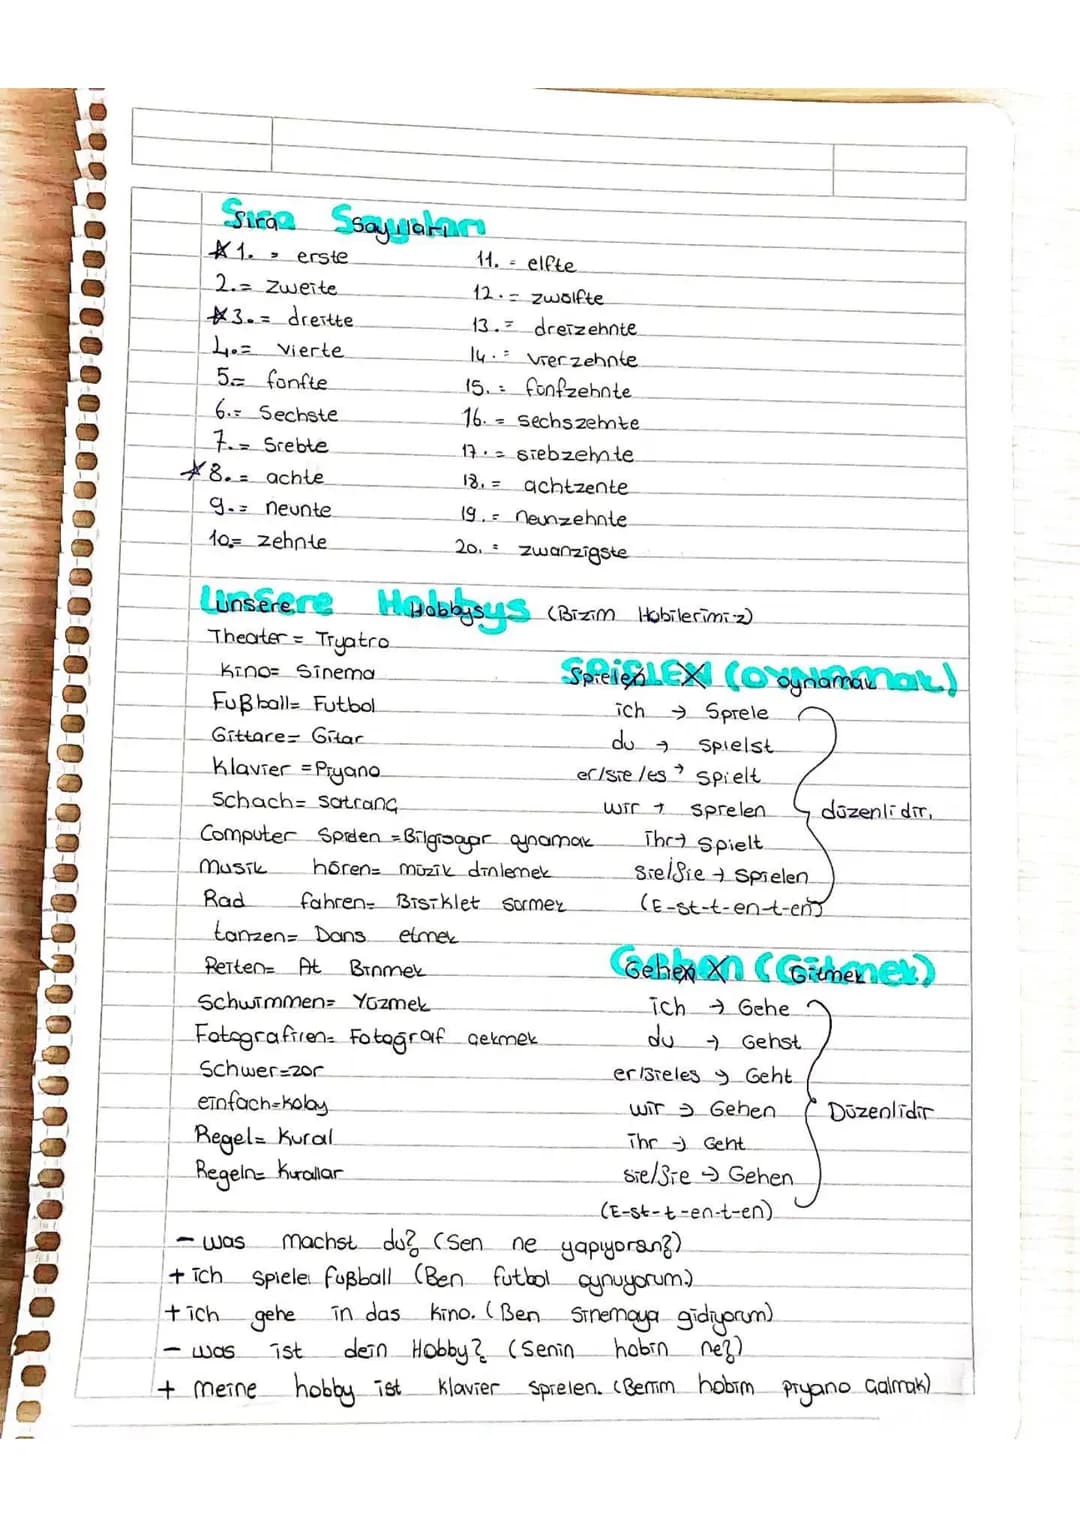 Sıra Sayıları
*1. = erste
2.= zweite
*3.= dreitte
4.= vierte
5.= fünfte
6.= Sechste
7.= Siebte
*8.= achte
9.= neunte
10.= zehnte
11. = elfte
12. = zwölfte
13. = dreizehnte
14. = vierzehnte
15. = fünfzehnte
16. = sechszehnte
17. = siebzehnte
18. = achtzente
19. = neunzehnte
20. = zwanzigste
Unsere Hobbys (Bizim Hobilerimiz)
Theater = Tiyatro
Kino= Sinema
Fußball= Futbol
Gittare= Gitar
Klavier =Piyano
Schach= satranç
Computer Spielen =Bilgisayar oynamak
Musik hören= müzik dinlemek
Rad fahren= Bisiklet sürmek
tanzen= Dans etmek
Reiten= At Binmek
Schwimmen= Yüzmek
Fotografiren= Fotoğraf çekmek
Schwer=zor
einfach=kolay
Regel= Kural
Regeln= Kurallar
Spielen (oynamak)
ich → Spiele
du → Spielst
er/sie/es → Spielt
wir → spielen
ihr→ Spielt
sie/Sie → Spielen
düzenlidir.
(E-st-t-en-t-en)
Gehen (Gitmek)
ich → Gehe
du → Gehst
er/sie/es → Geht
wir → Gehen
ihr → Geht
sie/Sie → Gehen
Düzenlidir
(E-st-t-en-t-en)
- was machst du? (Sen ne yapıyorsun?)
+ ich spiele fußball (Ben futbol oynuyorum.)
+ ich gehe in das kino. (Ben Sinemaya gidiyorum)
- was ist dein Hobby? (Senin hobin ne?)
+ meine hobby ist Klavier spielen. (Benim hobim piyano çalmak)